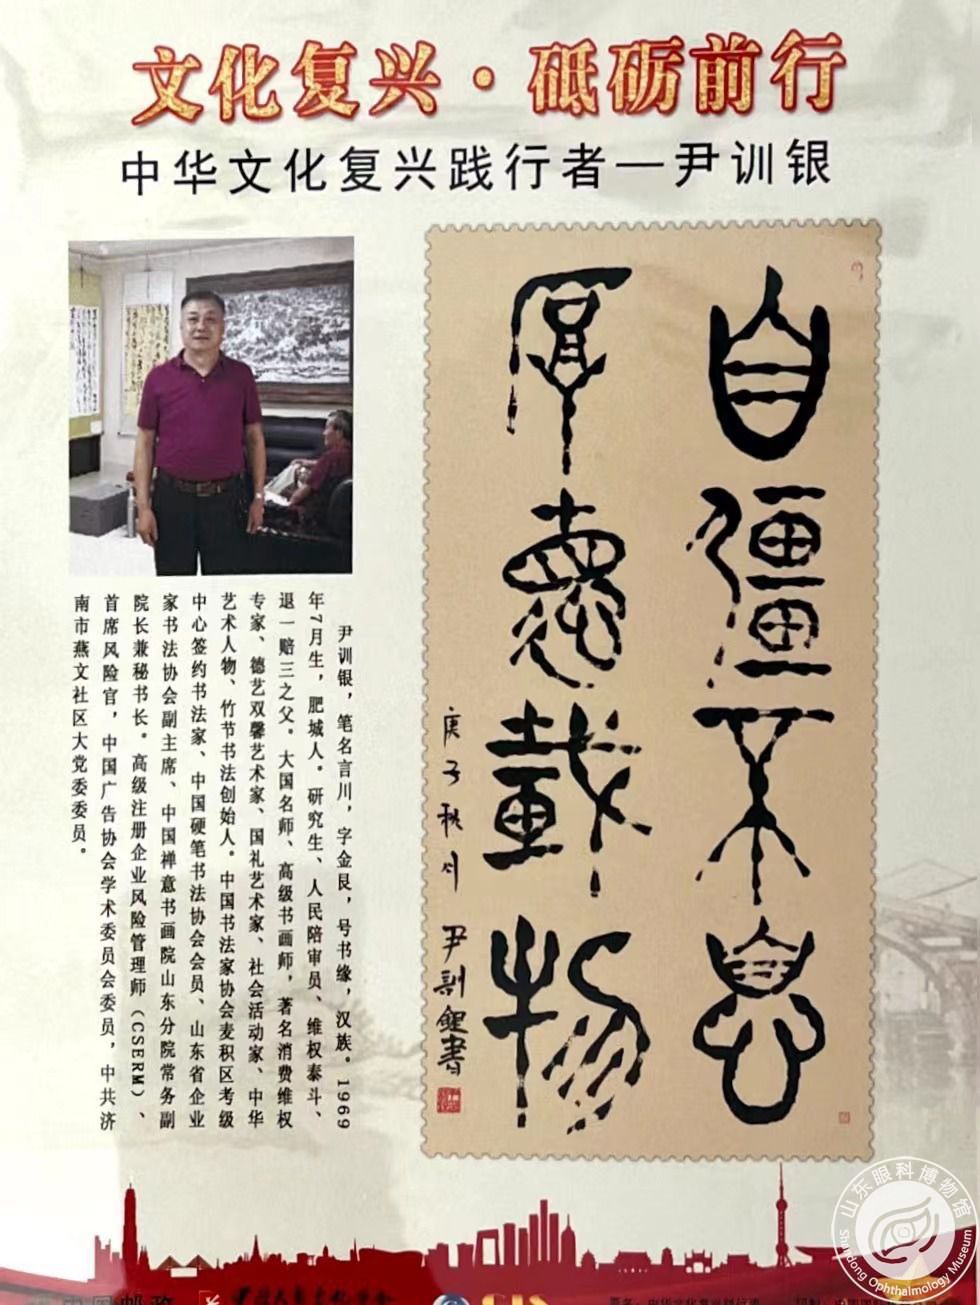 文化复兴·砥砺前行
中华文化复兴践行者—尹训银
自彊不息
厚悳載物
庚子秋月 尹訓銀書
尹训银，笔名言川，字金艮，号书缘，汉族。1969
年7月生，肥城人。研究生、人民陪审员、维权泰斗、
退一赔三之父。大国名师、高级书画师，著名消费维权
专家、德艺双馨艺术家、国礼艺术家、社会活动家、中华
艺术人物、竹节书法创始人。中国书法家协会麦积区考级
中心签约书法家、中国硬笔书法协会会员、山东省企业
家书法协会副主席、中国禅意书画院山东分院常务副
院长兼秘书长。高级注册企业风险管理师（CSERM）、
首席风险官，中国广告协会学术委员会委员，中共济
南市燕文社区大党委委员。
山东眼科博物馆
Shandong Ophthalmology Museum